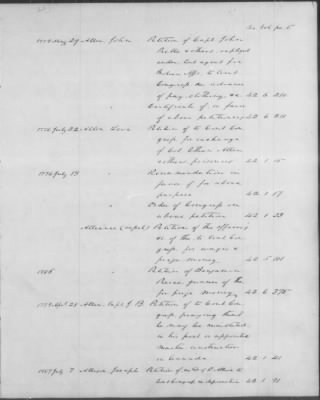 1778 May 29 Allen, John Petition of Capt. John
& others,
under last agent for
Indian Affs. to Cont
Congress an advance
of pay, clothing, &c 42 6 211
" Certificate of in favor
of above petitioners 42 6 211
1776 July 22 Allen Levi Petition of to Cont Con-
gress for exchange
of Col. Ethan Allen
& other prisoners 42 1 15
1776 July 13 " Recommendation in
favor of for above
purpose 42 1 17
" Order of Congress on
above petition 42 1 23
Alliance (vessel) Petition of the officers
&c of the to Cont Con-
gress for wages &
prize money 42 5 101
" Petition of Benjamin
Pierce gunner of the
for prize money 42 6 275
Allen, Capt. J. B. Petition of to Cont Con-
gress praying that
he may be reinstated
in his post or appointed
master
in Canada 42 1 41
July 7 Allison Joseph Petition of
Cont Congress 42 1 91